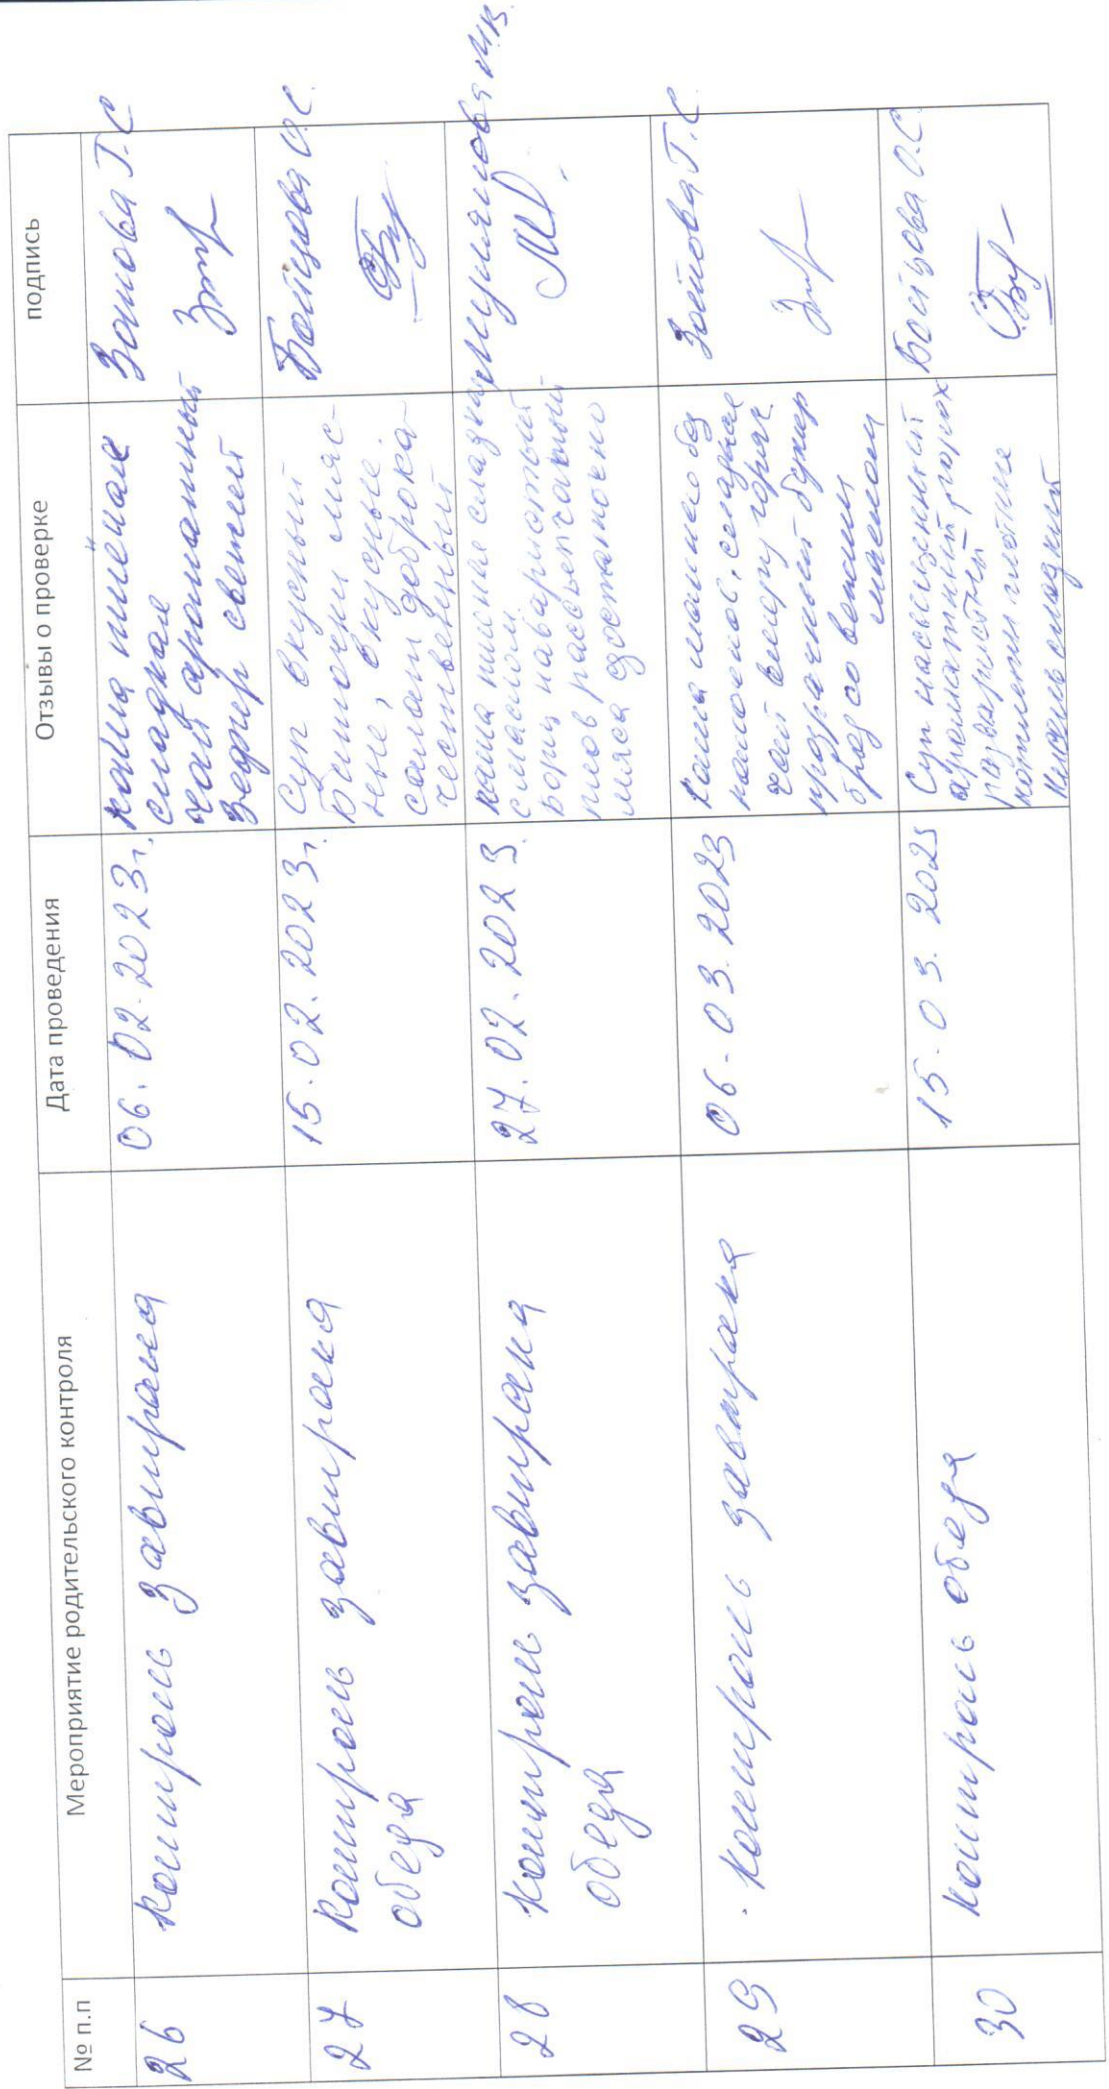 № п.п
Мероприятие родительского контроля
Дата проведения
Отзывы о проверке
подпись
26
контроль завтрака
06.02.2023г.
каша пшенная
сладкая
чай ароматный
Зефир свежий
Зотова Т.С
27
контроль завтрака
обеда
15.02.2023г.
Суп вкусный
биточки мяс-
ные, вкусные
салат доброка-
чественный
Бойцова О.С.
28
контроль завтрака
обеда
27.02.2023.
каша пшенная сладкая
с маслом
борщ наваристый
плов рассыпчатый
мяса достаточно
М.В.
29
контроль завтрака
06-03.2023
Каша манная без
комочков, сладкая
чай в меру горяч
прозрачный бутер
брод со
маслом
Зотова Т.С
30
контроль обеда
15.03.2023
Суп насыщенный
ароматный, горох
разваристый
котлеты плотные
Кисель сладкий
Бойцова О.С.